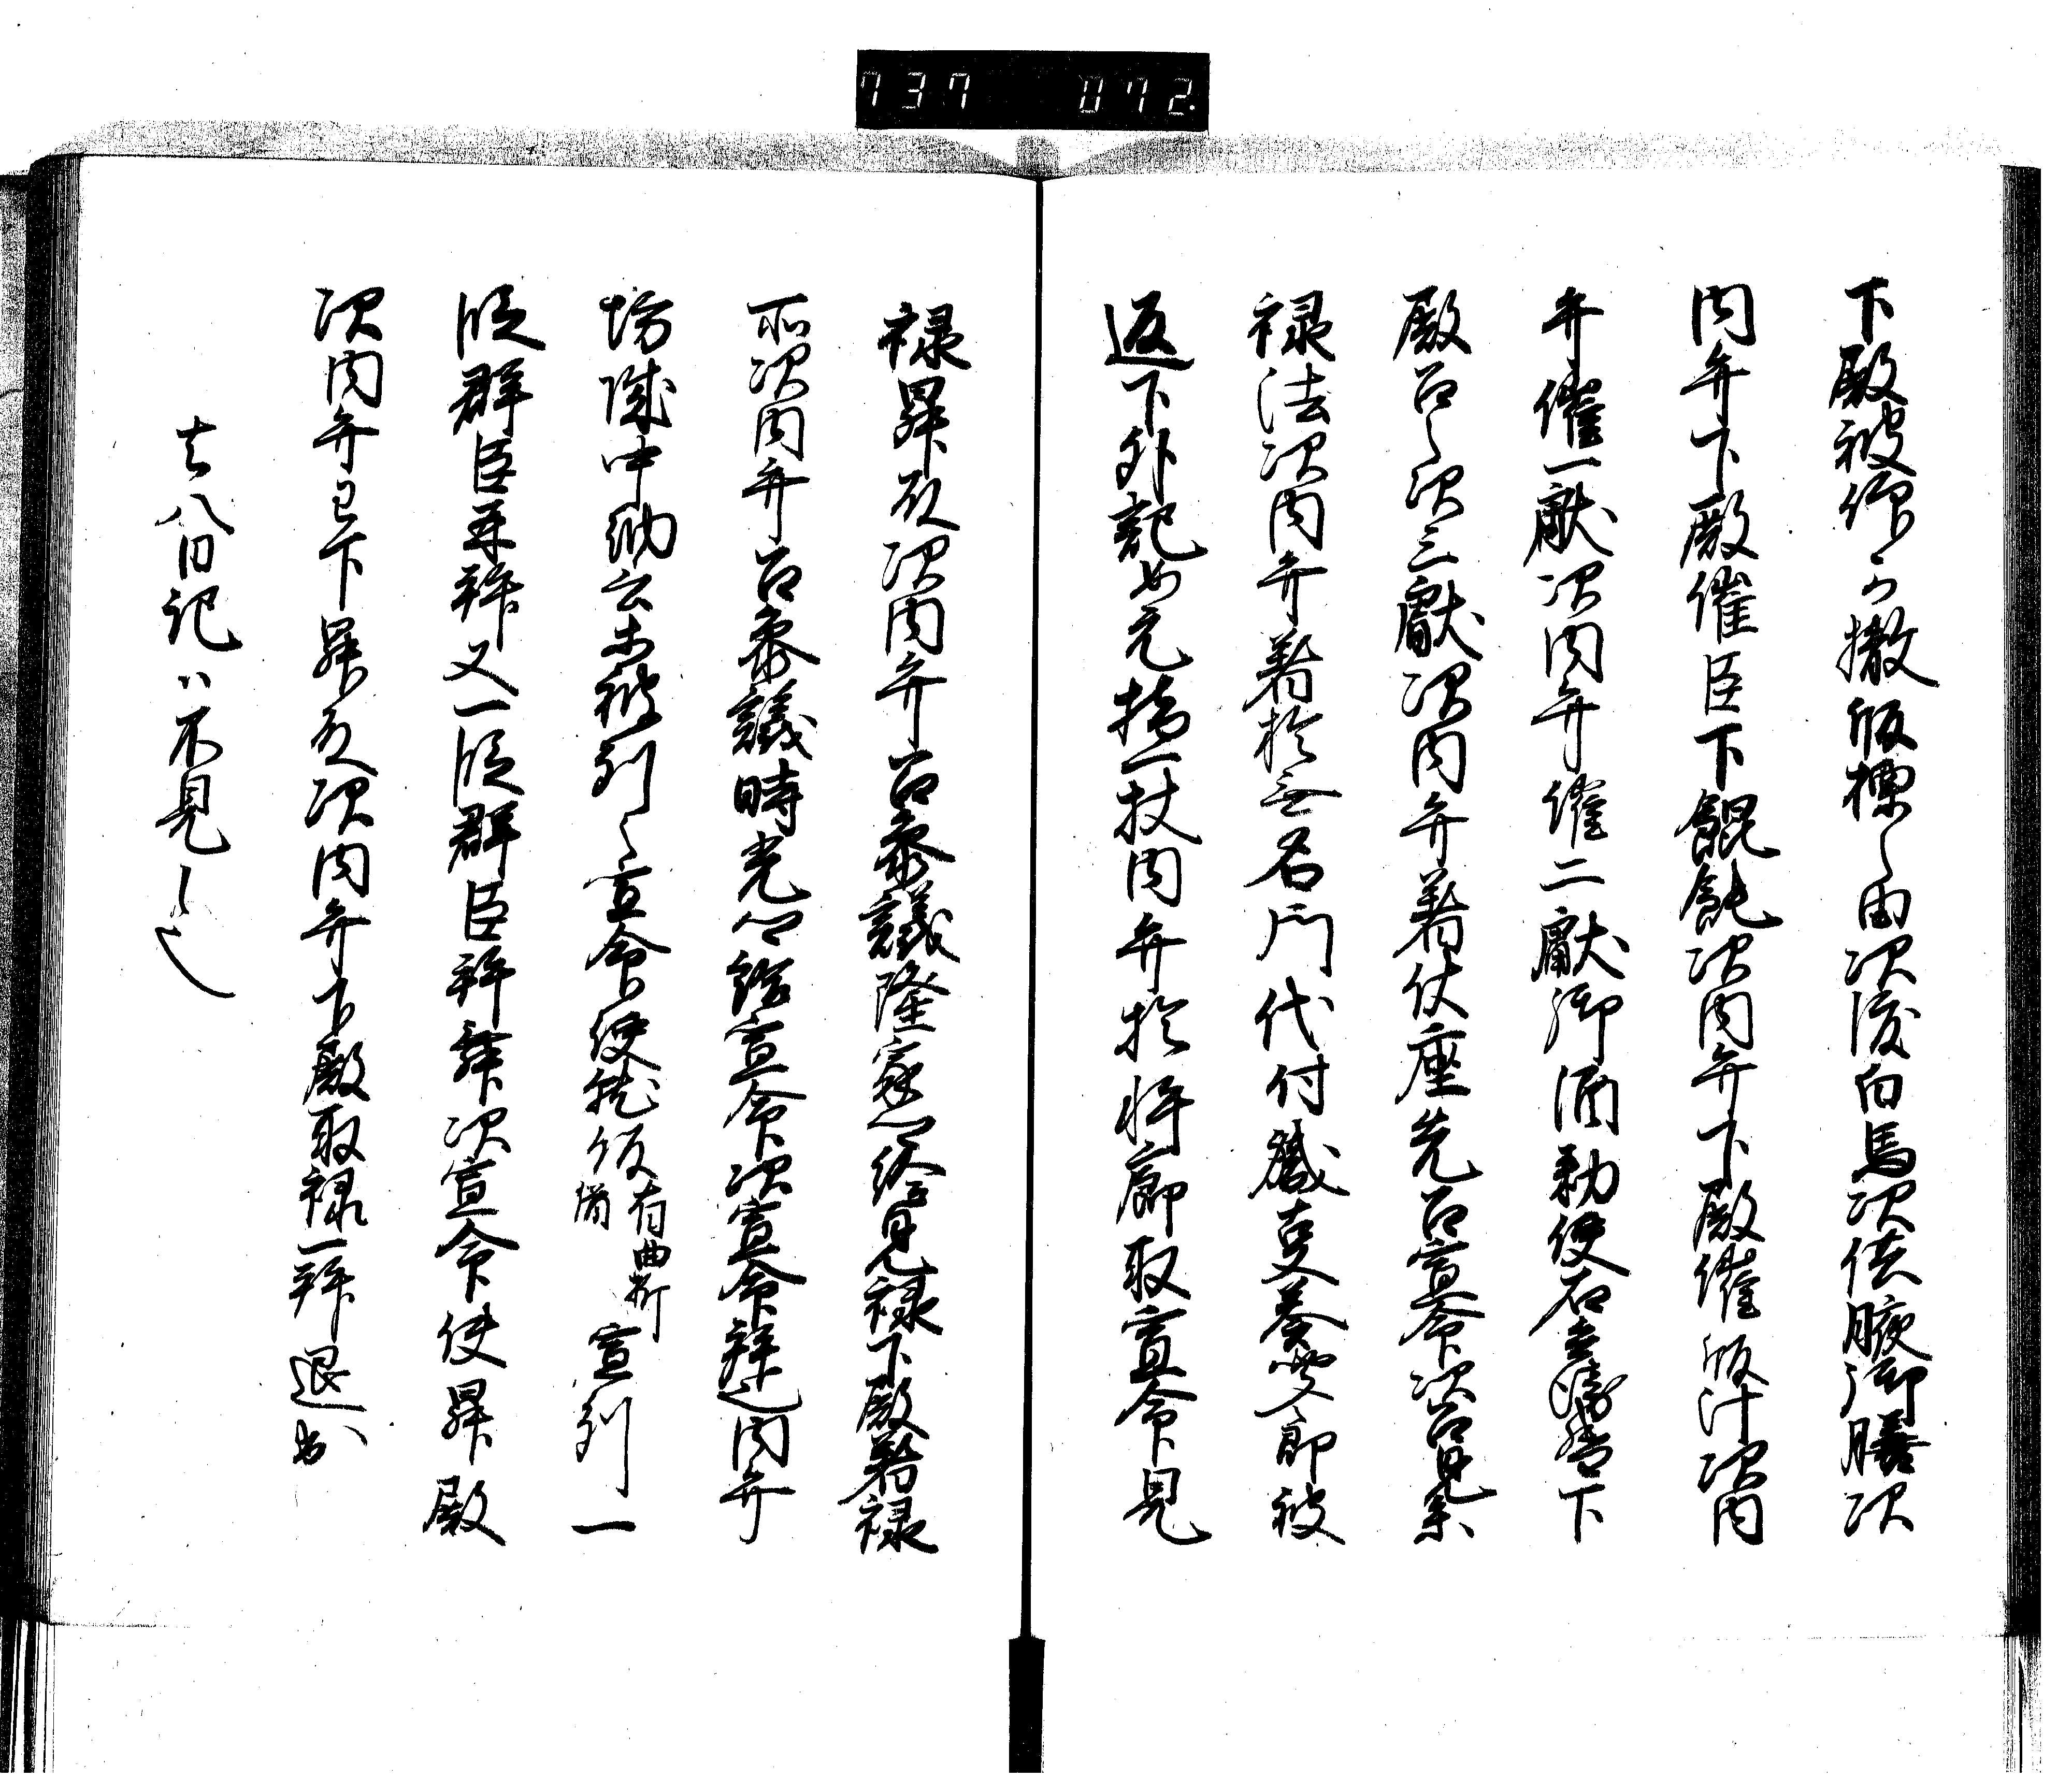 737 072
下殿被仰可撤版標之由次渡白馬次供腋御膳次
内弁下殿催臣下餛飩次内弁下殿催飯汁次内
弁催一献次内弁催二献御酒勅使右兵衛督下
殿召之次三献次内弁着仗座先召宣命次召見参
禄法次内弁着於無名門代付職事奏聞即被
返下外記如元揷一杖内弁於軒廊取宣命見
禄昇殿次内弁召参議隆家卿給見禄下殿着禄
所次内弁召参議時光卿給宣命次宣命拝内弁
坊城中納言未被列之宣命使就版有曲折揖宣制一
段群臣再拝又一段群臣拝舞次宣命使昇殿
次内弁已下昇殿次内弁下殿取禄一拝退出
七八日記ハ不見之也